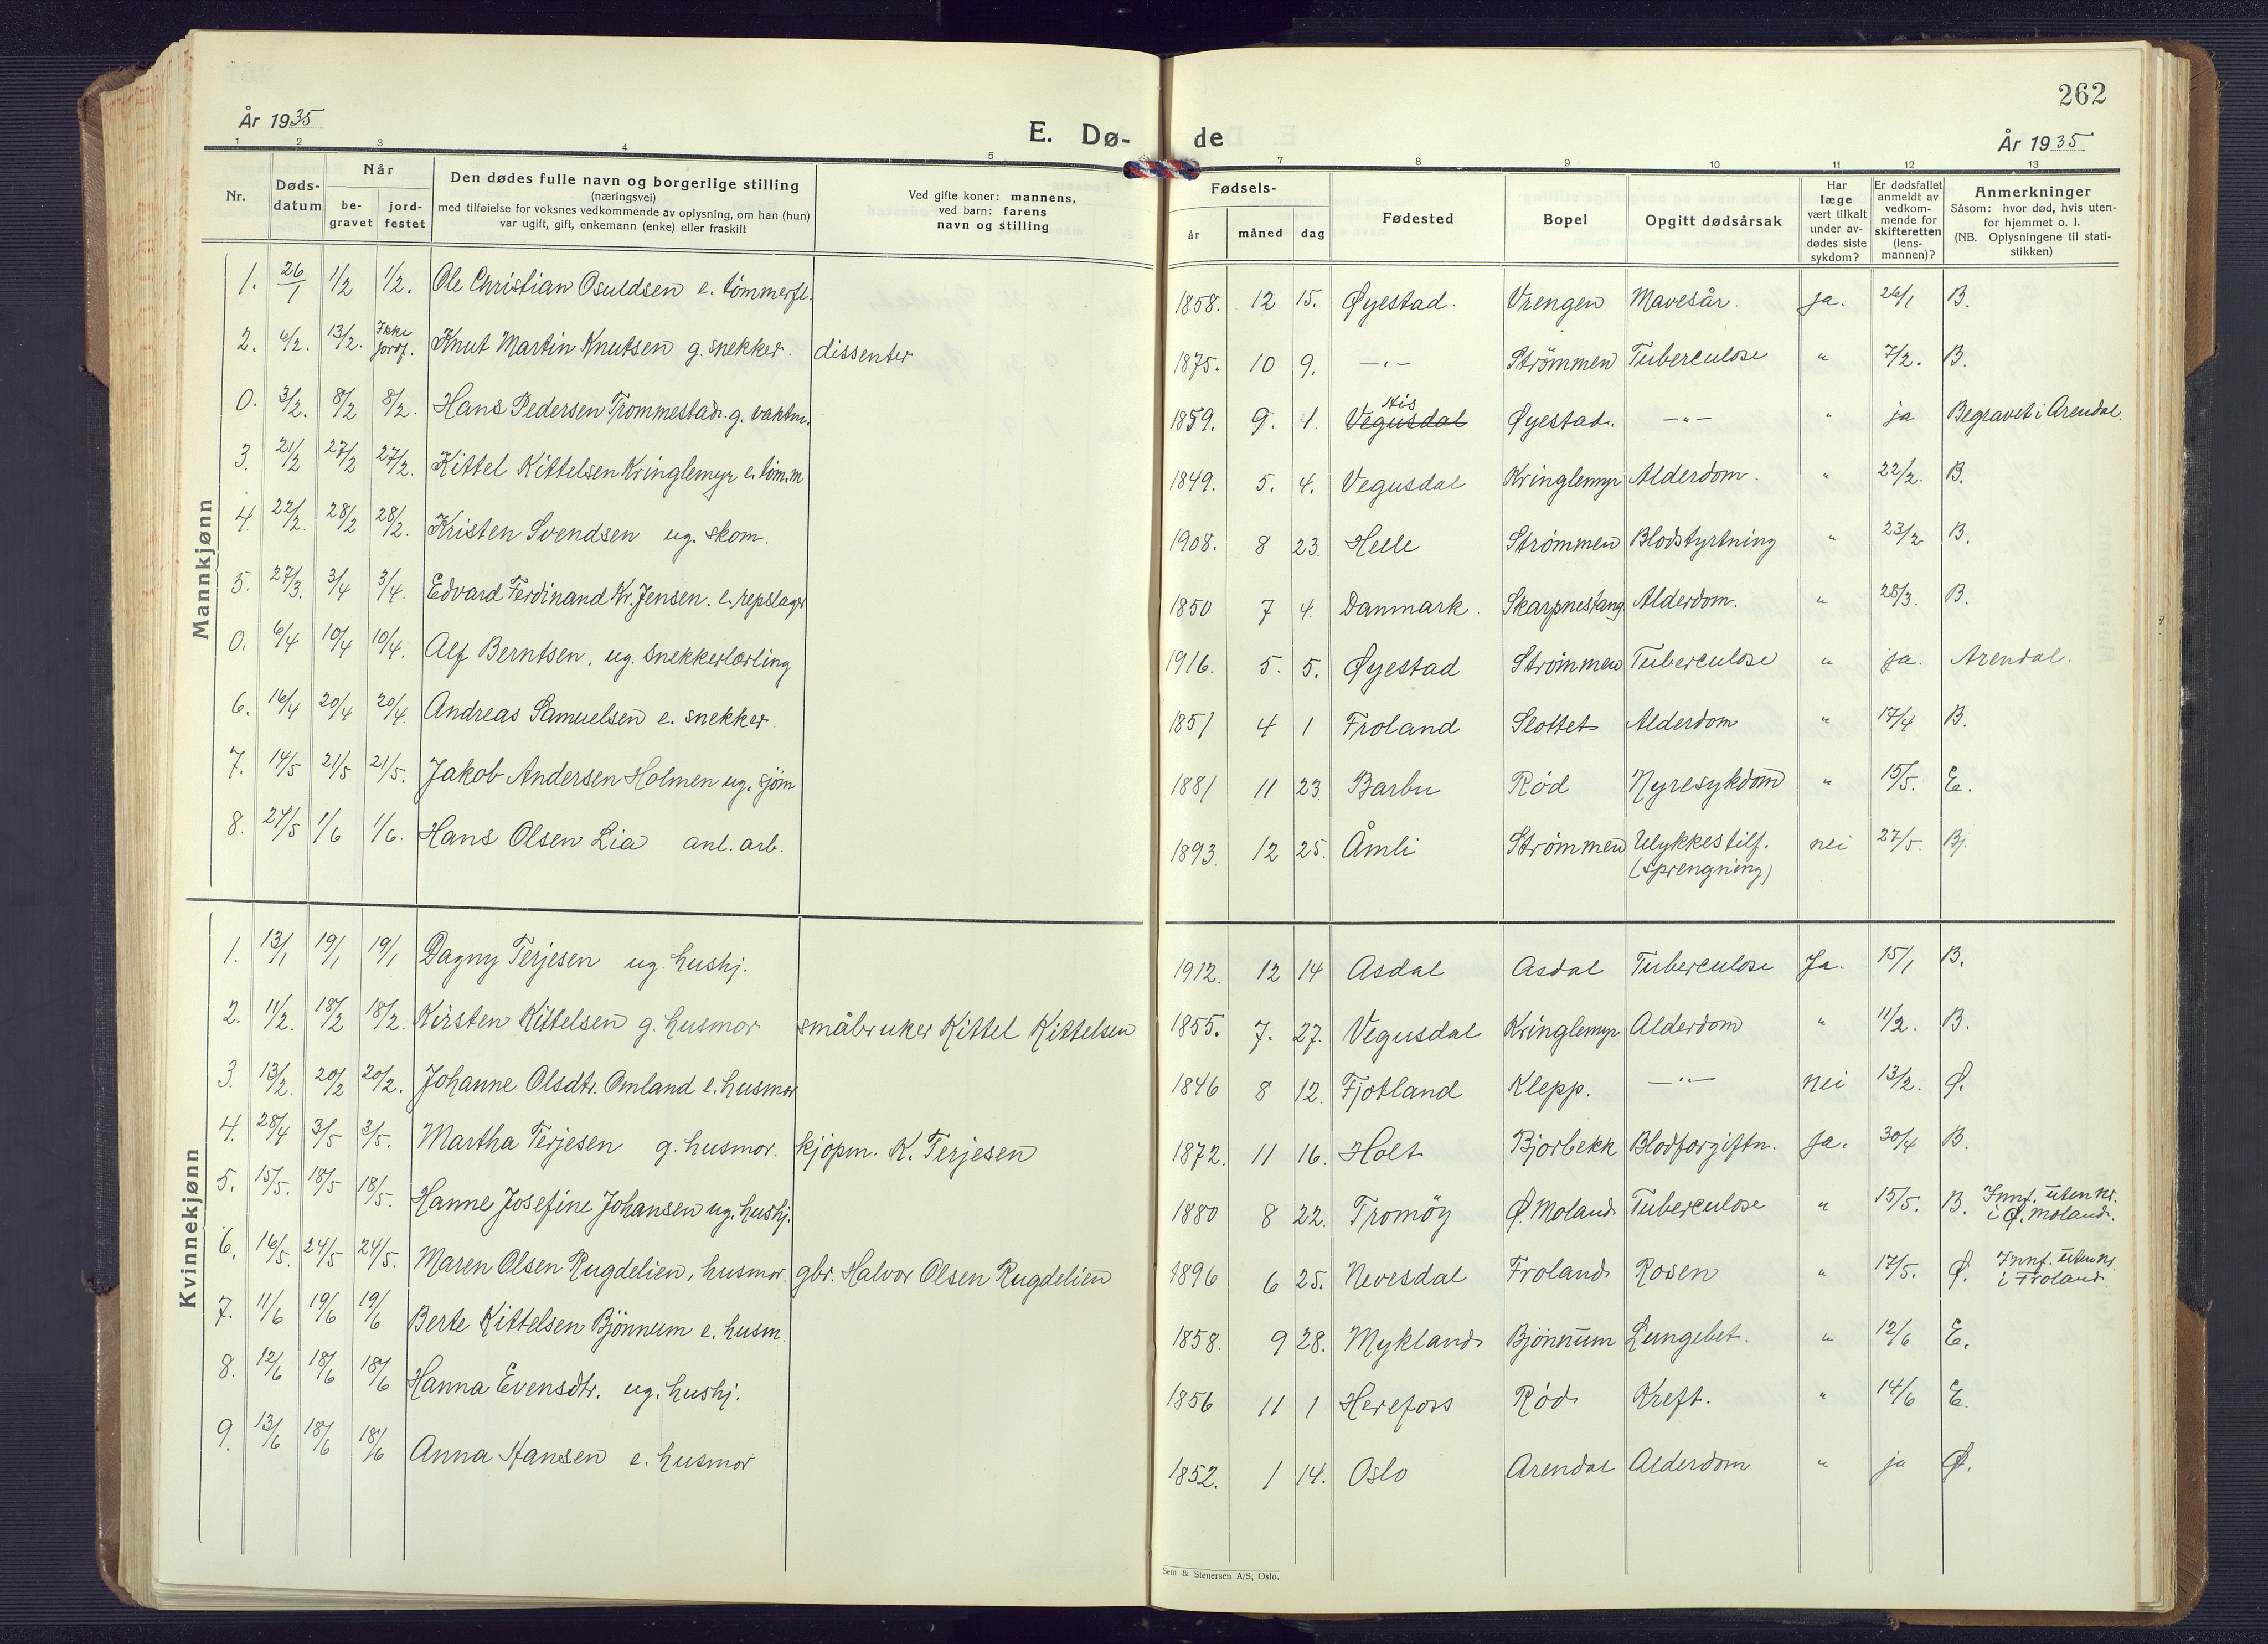 262
År 1935
E. Dø-
de
År 1935
1 2 3 4 5 7 8 9 10 11 12 13
Nr.
Døds-
datum
Når
be-
gravet
jord-
festet
Den dødes fulle navn og borgerlige stilling
(næringsvei)
med tilføielse for voksnes vedkommende av oplysning, om han (hun)
var ugift, gift, enkemann (enke) eller fraskilt
Ved gifte koner: mannens,
ved barn: farens
navn og stilling
Fødsels-
år måned dag
Fødested
Bopel
Opgitt dødsårsak
Har
læge
vært tilkalt
under av-
dødes siste
sykdom?
Er dødsfallet
anmeldt av
vedkom-
mende for
skifteretten
(lens-
mannen)?
Anmerkninger
Såsom: hvor død, hvis uten-
for hjemmet o. l.
(NB. Oplysningene til stati-
stikken)
Mannkjønn
1. 26/1 1/2 1/2. Ole Christian Osuldsen e. tømmerfl. 1858. 12 15. Øyestad. Vrengen Mavesår. ja. 26/1 B.
2. 6/2. 13/2. Ikke jordf. Knut Martin Knutsen g. snekker. dissenter 1875. 10 9. —"— Strömmen Tuberculose " 7/2. B.
0. 3/2. 8/2 8/2. Hans Pedersen Trommestad. g. vaktm. 1859. 9. 1. Vegusdal His Øyestad. —"— " ja Begravet i Arendal.
3. 21/2 27/2 27/2. Kittel Kittelsen Kringlemyr e. töm.m 1849. 5. 4. Vegusdal Kringlemyr Alderdom. " 22/2. B.
4. 22/2. 28/2 28/2. Kristen Svendsen ug. skom. 1908. 8 23. Helle Strømmen Blodstyrtning " 23/2 B.
5. 27/3. 3/4 3/4. Edvard Ferdinand Kr. Jensen. e. repslager 1850 7 4. Danmark. Skarpnestang Alderdom. " 28/3. B.
0. 6/4 10/4 10/4. Alf Berntsen. ug. snekkerlærling 1916. 5. 5. Øyestad Strömmen Tuberculose " ja. Arendal.
6. 16/4 20/4 20/4. Andreas Samuelsen e. snekker. 1851 4 1 Froland Slottet Alderdom " 17/4 B.
7. 14/5 21/5 21/5. Jakob Andersen Holmen ug. sjöm 1881 11 23. Barbu Rød Nyresykdom " 15/5. E.
8. 24/5 1/6 1/6. Hans Olsen Lia anl. arb. 1893. 12 25. Åmli Strømmen Ulykkestilf. (sprengning) nei 27/5. Bj.
Kvinnekjønn
1. 13/1 19/1 19/1 Dagny Terjesen ug. hushj. 1912. 12 14 Asdal Asdal Tuberculose Ja. 15/1 B.
2. 11/2. 18/2 18/2. Kirsten Kittelsen g. husmor småbruker Kittel Kittelsen 1855. 7. 27. Vegusdal Kringlemyr Alderdom " 11/2. B.
3. 13/2. 20/2 20/2. Johanne Olsdtr. Omland e. husmor 1846 8 12. Fjotland Klepp. —"— nei 13/2. Ø.
4. 28/4 3/5 3/5. Martha Terjesen g. husmor. kjöpm. K. Terjesen 1872. 11 16. Holt Bjorbekk Blodforgiftn. Ja. 30/4 B.
5. 15/5. 18/5 18/5. Hanne Josefine Johansen ug. hushj. 1880 8 22. Tromöy Ø. Moland Tuberculose " 15/5. B. Innf. uten nr. i Ø. Moland.
6. 16/5. 24/5 24/5. Maren Olsen Rugdelien, husmor. gbr. Halvor Olsen Rugdelien 1896 6 25. Nevesdal Froland Rosen " 17/5. Ø. Innf. uten nr. i Froland.
7. 11/6 19/6 19/6 Berte Kittelsen Bjönnum e. husm. 1858. 9 28. Mykland Bjönnum Lungebet. " 12/6 E.
8. 12/6 18/6 18/6 Hanna Evensdtr. ug. hushj. 1856 11 1 Herefoss Rød Kreft. " 14/6 E.
9. 13/6 18/6 18/6 Anna Hansen e. husmor 1852. 1 14. Oslo Arendal Alderdom " ja Ø.
Sem & Stenersen A/S, Oslo.